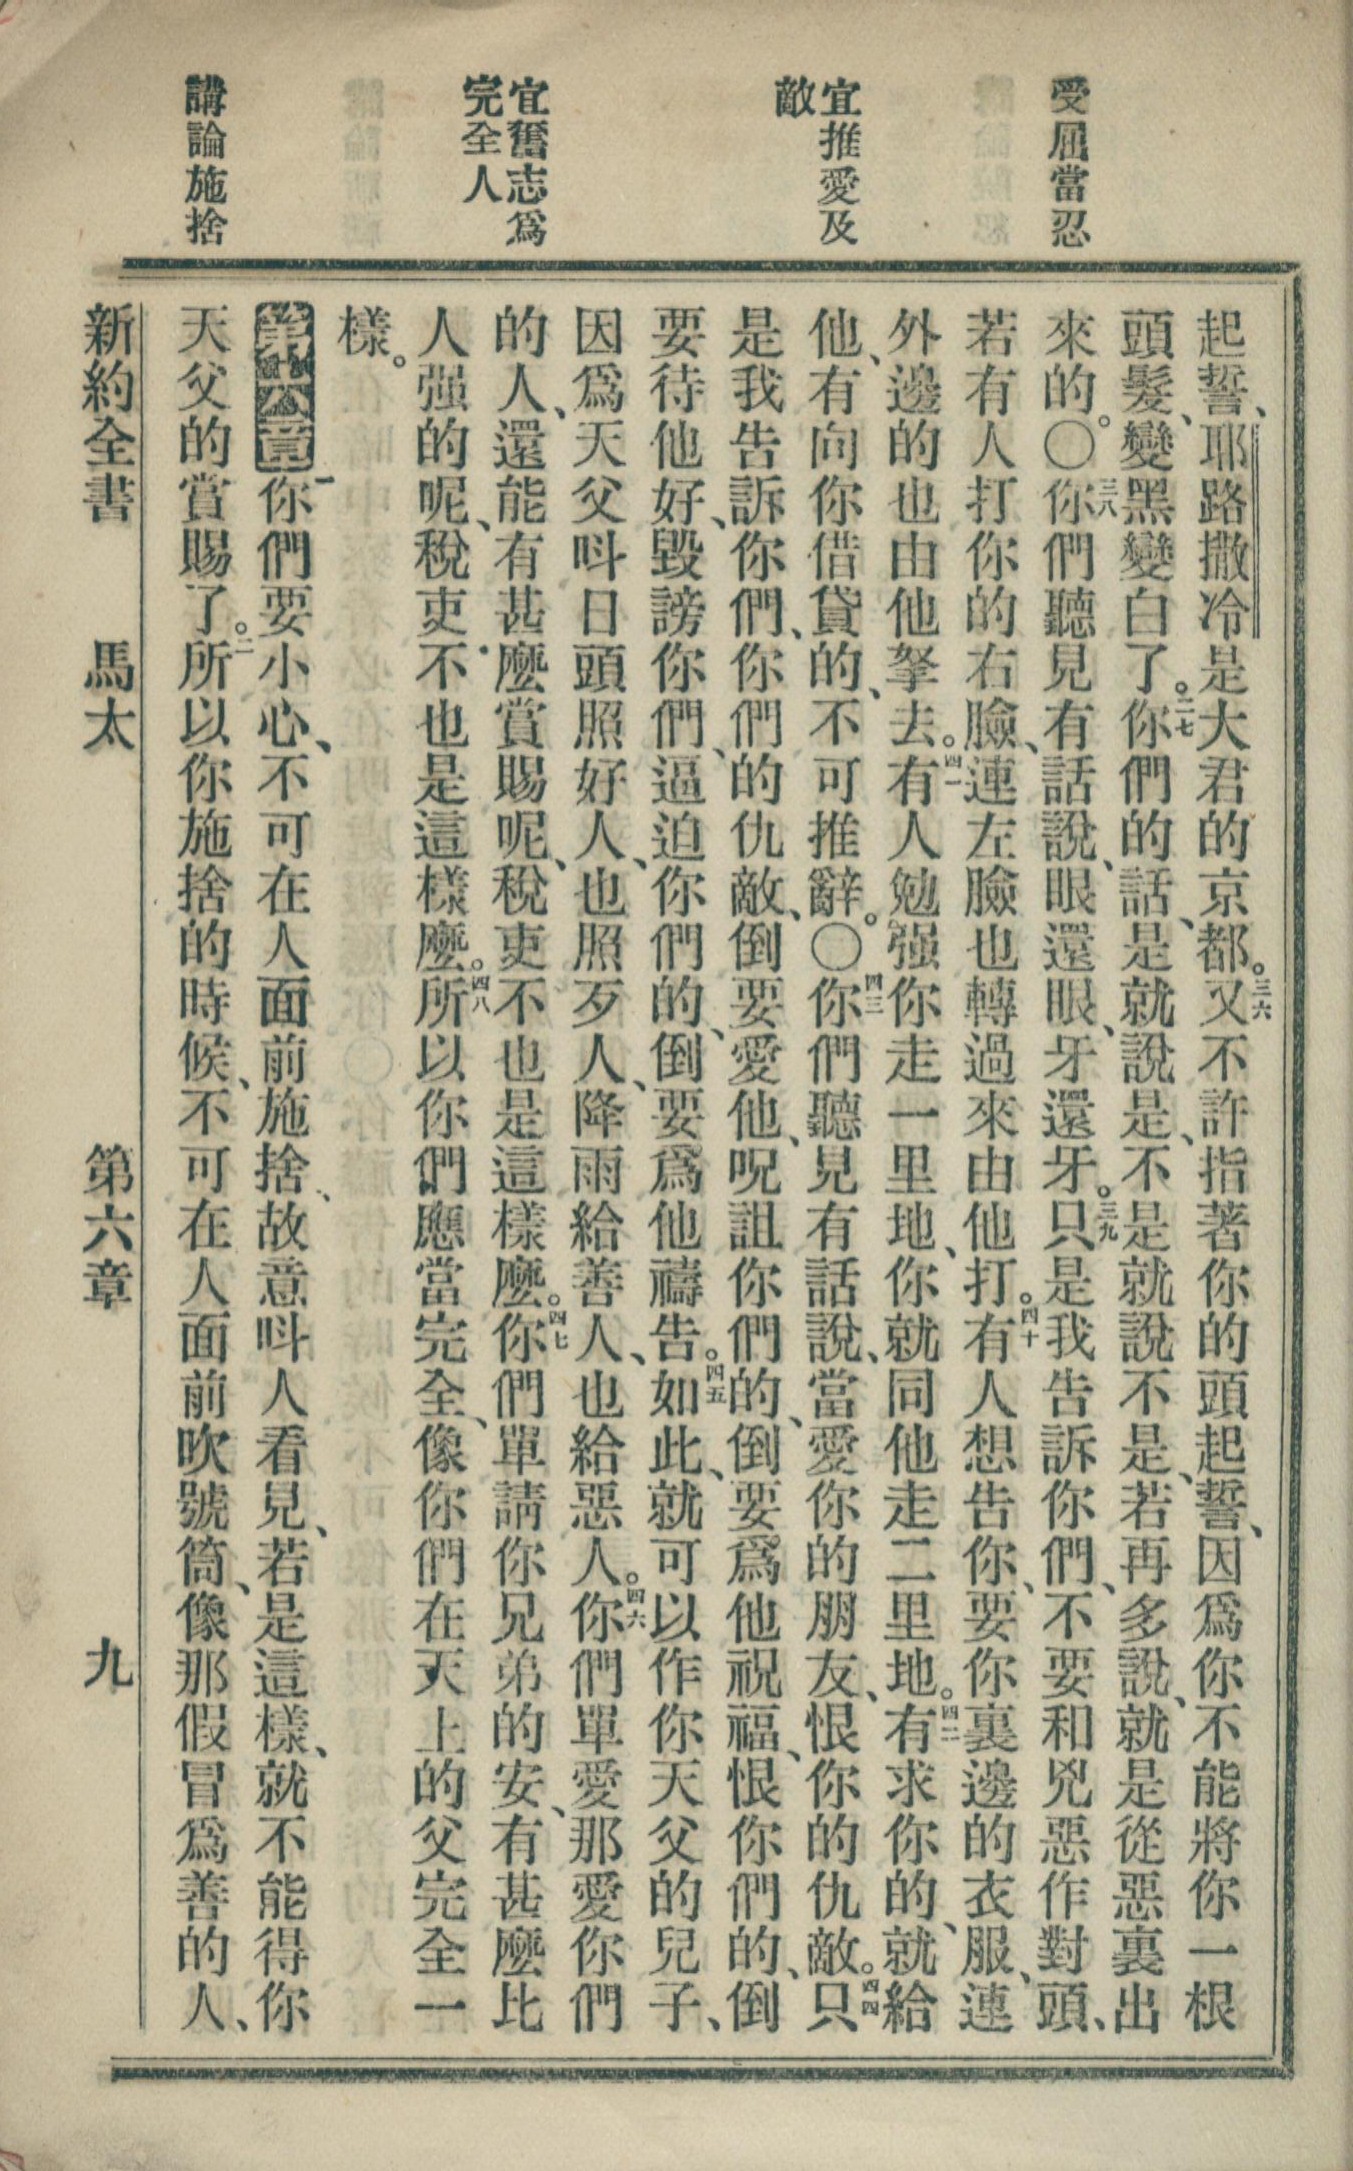 受屈當忍
宜推愛及
敵
宜奮志爲
完全人
講論施捨
起誓、耶路撒冷是大君的京都。三六又不許指著你的頭起誓、因爲你不能將你一根
頭髮、變黑變白了。二七你們的話、是就說是、不是就說不是、若再多說、就是從惡裏出
來的。〇三八你們聽見有話說、眼還眼、牙還牙。三九只是我告訴你們、不要和兇惡作對頭、
若有人打你的右臉、連左臉也轉過來由他打。四十有人想告你、要你裏邊的衣服、連
外邊的也由他拏去。四一有人勉强你走一里地、你就同他走二里地。四二有求你的、就給
他、有向你借貸的、不可推辭。〇四三你們聽見有話說、當愛你的朋友、恨你的仇敵。四四只
是我告訴你們、你們的仇敵、倒要愛他、呪詛你們的、倒要爲他祝福、恨你們的、倒
要待他好、毀謗你們、逼迫你們的、倒要爲他禱告。四五如此、就可以作你天父的兒子、
因爲天父呌日頭照好人、也照歹人、降雨給善人、也給惡人。四六你們單愛那愛你們
的人、還能有甚麼賞賜呢、稅吏不也是這樣麼。四七你們單請你兄弟的安、有甚麼比
人强的呢、稅吏不也是這樣麼。四八所以你們應當完全、像你們在天上的父完全一
樣。
第六章一你們要小心、不可在人面前施捨、故意呌人看見、若是這樣、就不能得你
天父的賞賜了。二所以你施捨的時候、不可在人面前吹號筒、像那假冒爲善的人、
新約全書 馬太 第六章 九